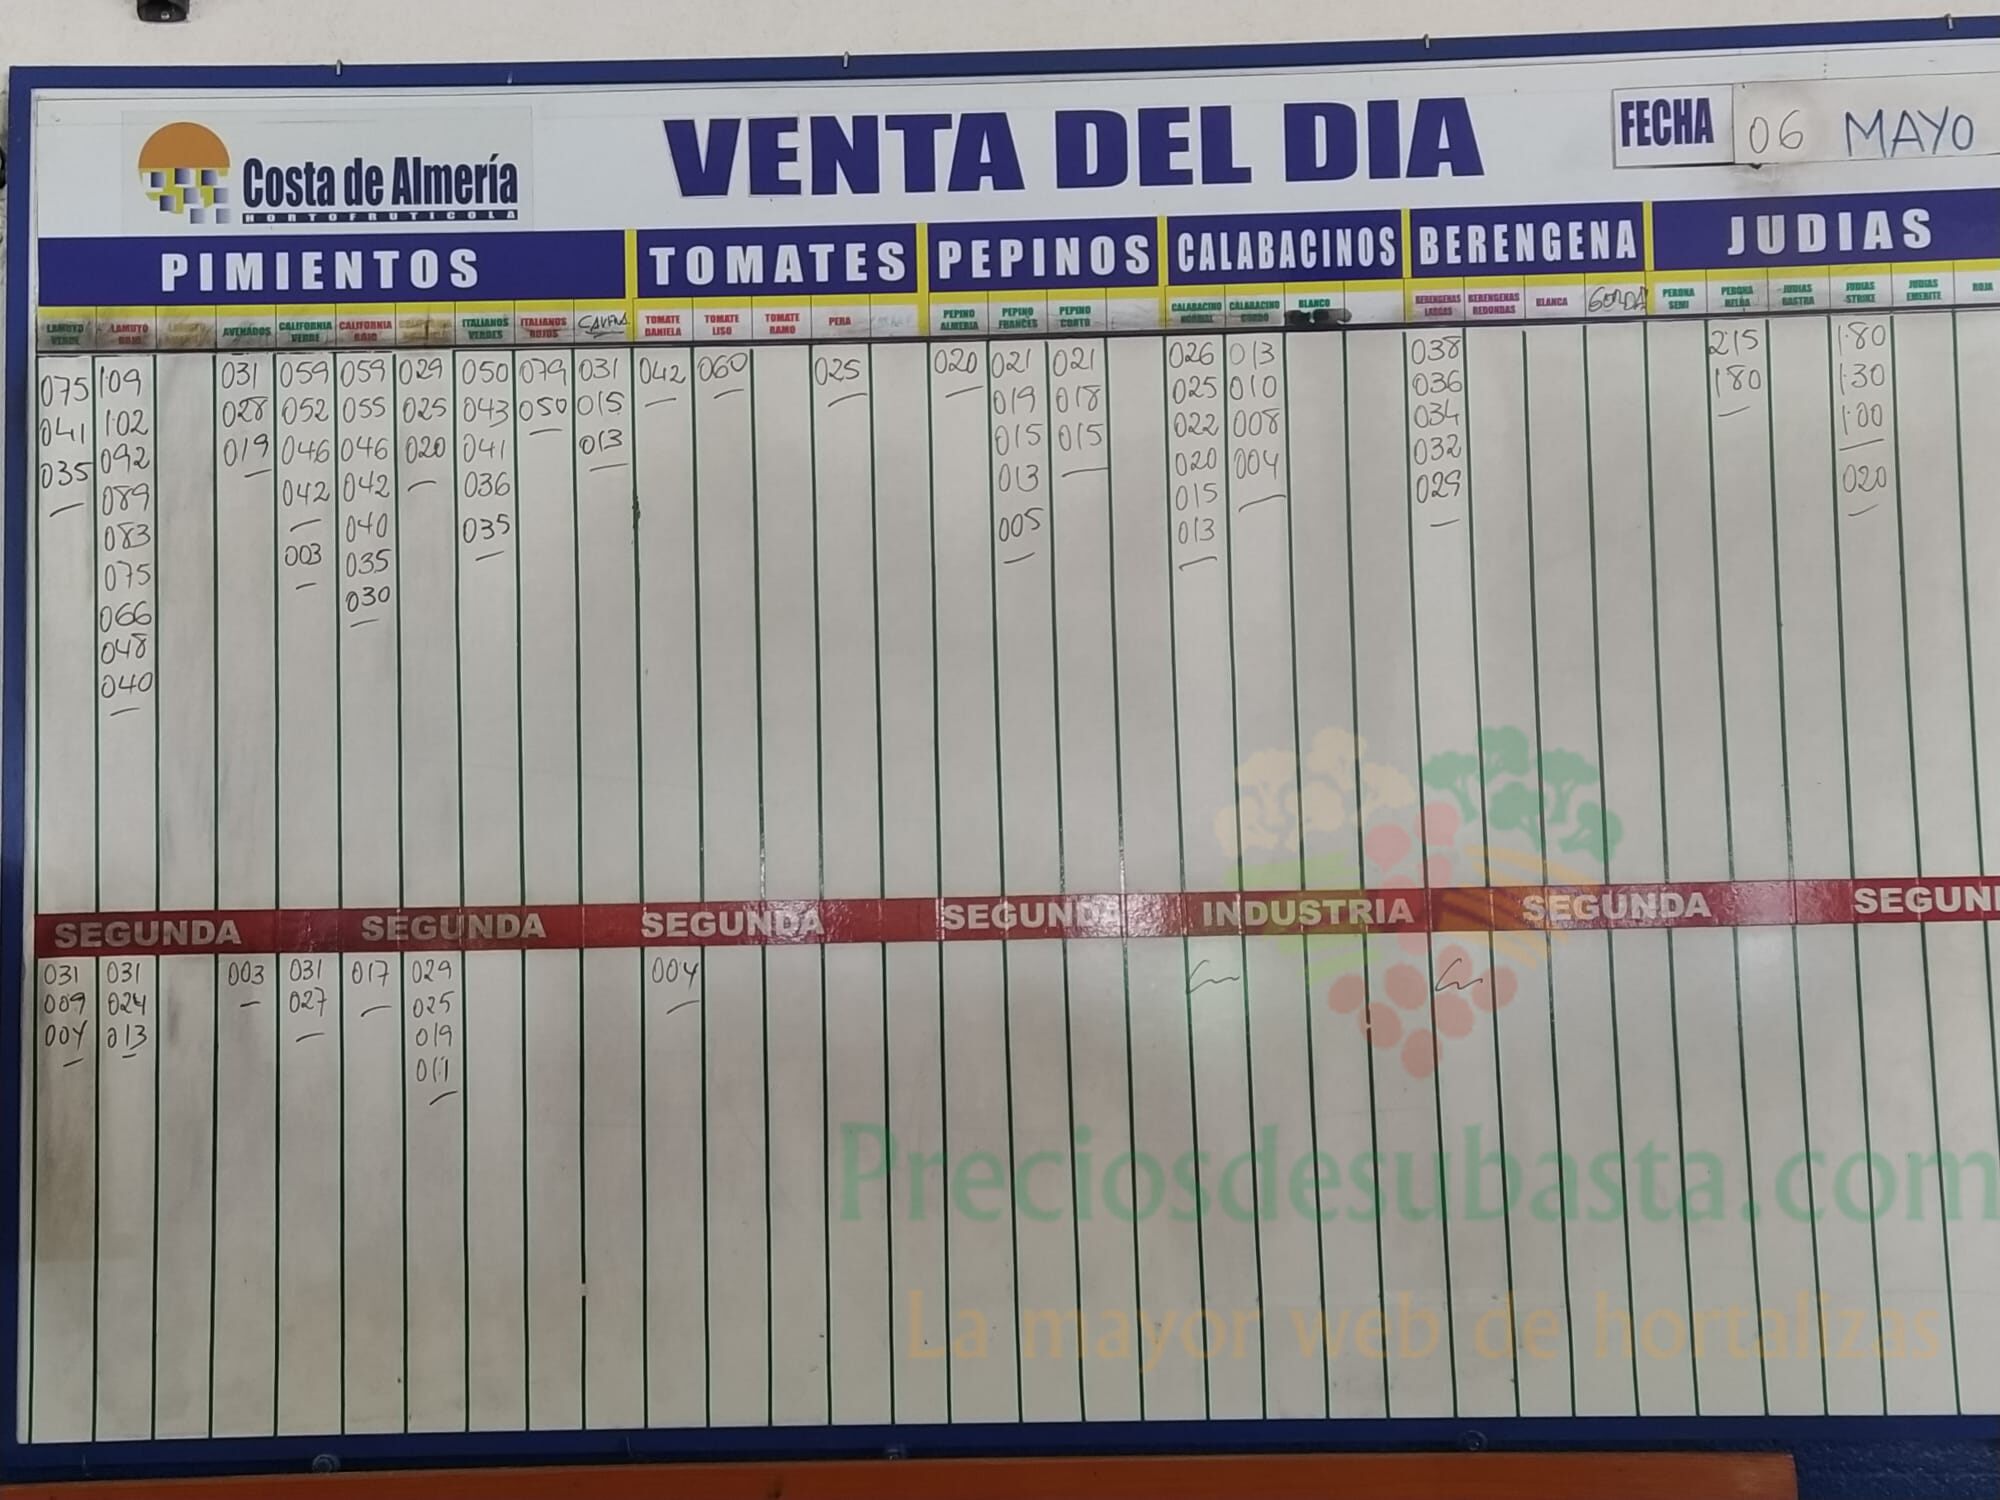 Costa de Almería
HORTOFRUTICOLA
VENTA DEL DIA
FECHA 06 MAYO
PIMIENTOS TOMATES PEPINOS CALABACINOS BERENGENA JUDIAS
LAMUYO VERDE LAMUYO ROJO AVENADOS CALIFORNIA VERDE CALIFORNIA ROJO ITALIANOS VERDES ITALIANOS ROJOS TOMATE DANIELA TOMATE LISO TOMATE RAMO PERA PEPINO ALMERIA PEPINO FRANCES PEPINO CORTO CALABACINO CALABACINO GORDO BLANCO BERENGENAS LARGAS BERENGENAS REDONDAS BLANCA GORDA PERONA SEMI PERONA JUDIAS JUDIAS STRIKE JUDIAS EMERITE ROJA
075 1·09 031 059 059 029 050 079 031 042 060 025 020 021 021 026 013 038 215 1·80
041 1·02 028 052 055 025 043 050 015 019 018 025 010 036 180 1·30
035 092 019 046 046 020 041 013 015 015 022 008 034 1·00
089 042 042 036 013 020 004 032 020
083 003 040 035 005 015 029
075 035 013
066 030
048
040
SEGUNDA SEGUNDA SEGUNDA SEGUNDA INDUSTRIA SEGUNDA SEGUN
031 031 003 031 017 029 004
009 024 027 025
004 013 019
011
Preciosdesubasta.com
La mayor web de hortalizas